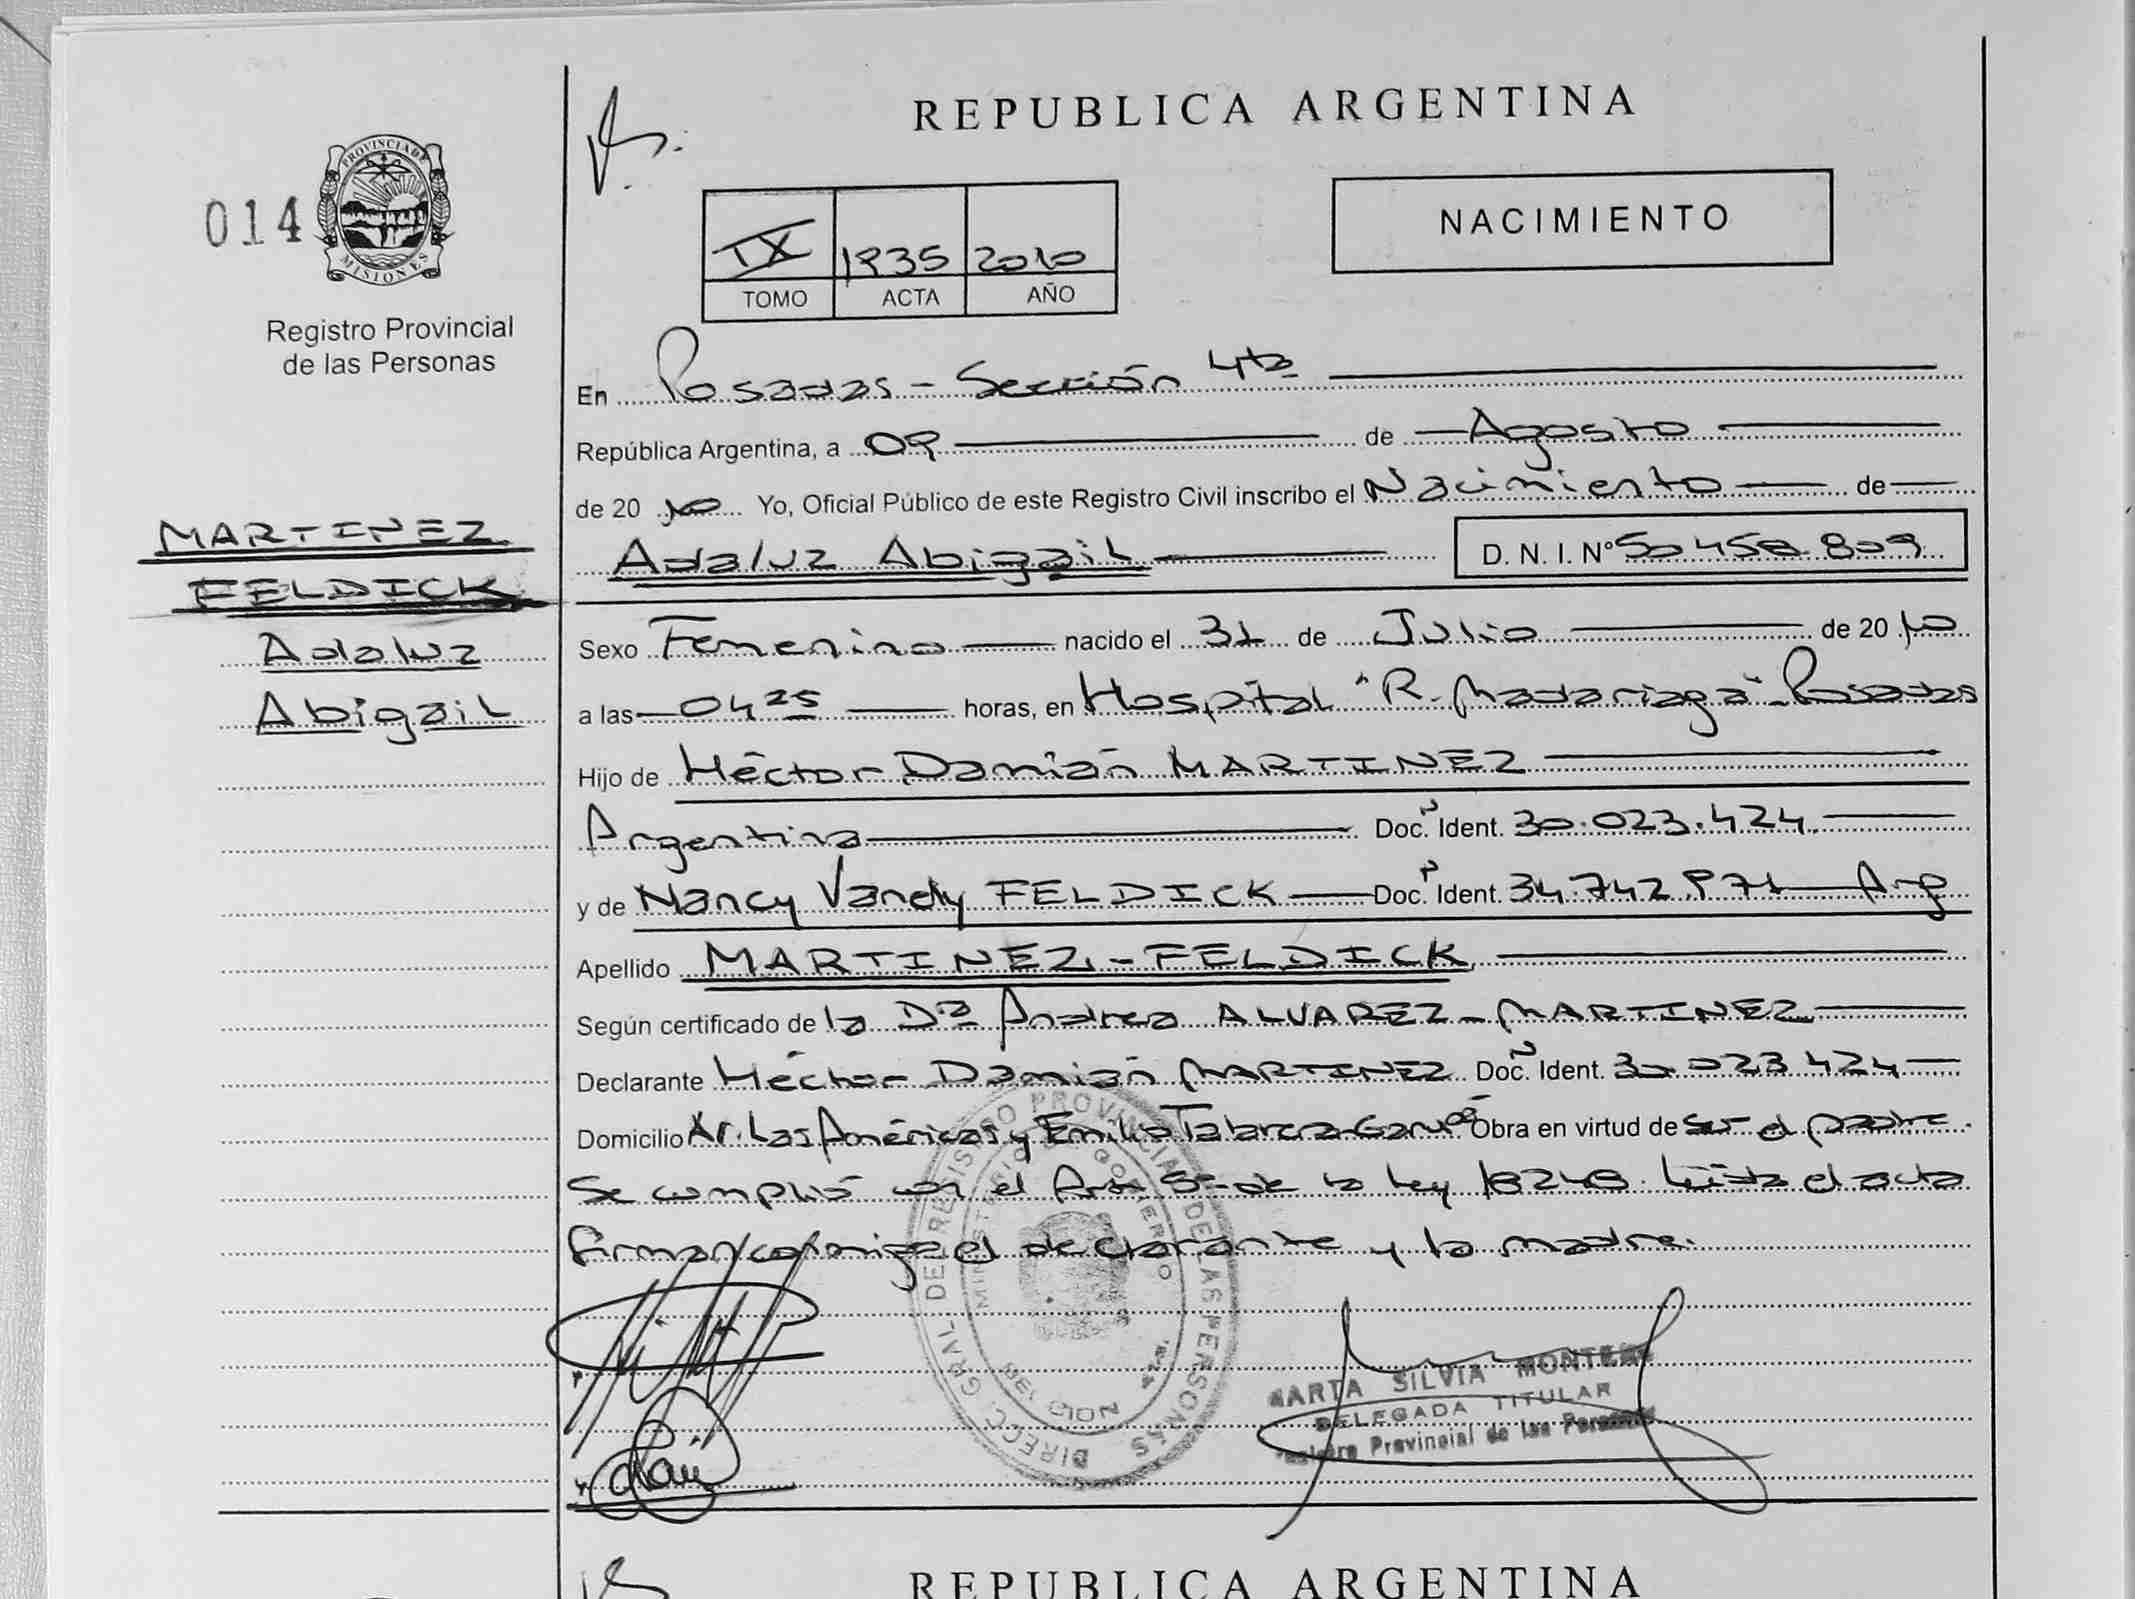 REPUBLICA ARGENTINA
014
PROVINCIA DE
MISIONES
Registro Provincial
de las Personas
IX 1935 2010
TOMO ACTA AÑO
NACIMIENTO
En Posadas - Sección 4ta
República Argentina, a 09 de Agosto
de 2010 Yo, Oficial Público de este Registro Civil inscribo el Nacimiento de
Adaluz Abigail D. N. I. Nº 50.458.809
MARTINEZ
FELDICK
Adaluz
Abigail
Sexo Femenino nacido el 31 de Julio de 2010
a las 04 25 horas, en Hospital "R. Madariaga" - Posadas
Hijo de Héctor Damián MARTINEZ
Argentina Doc. Ident. 30.023.424
y de Nancy Vanely FELDICK Doc. Ident. 34.742.971 Arg
Apellido MARTINEZ - FELDICK
Según certificado de la Dra Andrea ALVAREZ - MARTINEZ
Declarante Héctor Damián MARTINEZ Doc. Ident. 30 023 424
Domicilio Av. Las Américas y Emilio Obra en virtud de ser el padre
Se cumplió con el Art. 5º de la Ley 18248. Leída el acta
firman conmigo el declarante y la madre.
DIREC. GRAL. DEL REGISTRO PROVINCIAL DE LAS PERSONAS
MINISTERIO DE GOBIERNO
MARTA SILVIA
DELEGADA TITULAR
Registro Provincial de las Personas
REPUBLICA ARGENTINA